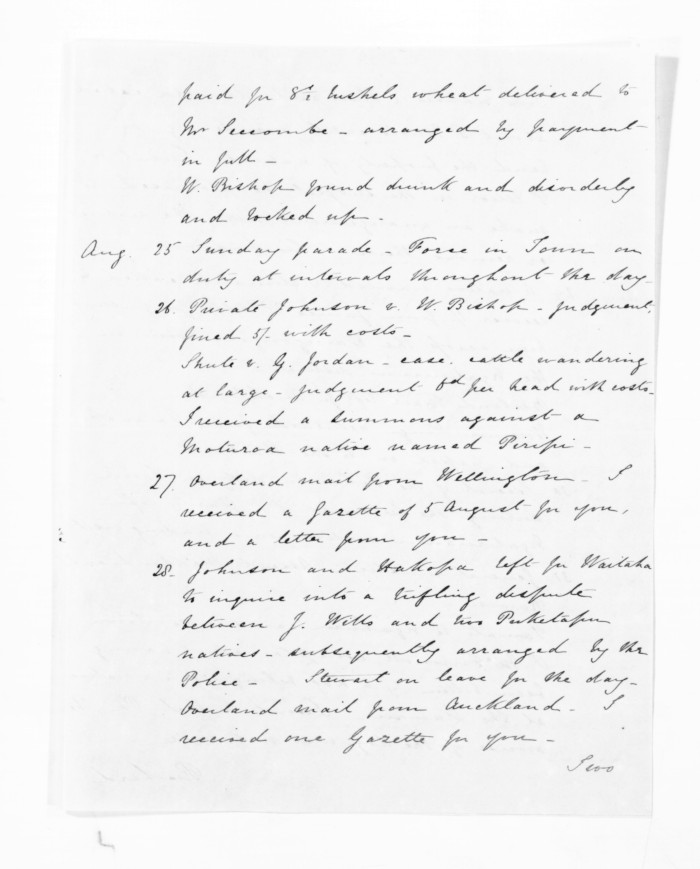 paid for bushels wheat delivered to
Mr Seccombe - arranged by payment
in full -
W. Bishop found drunk and disorderly
and locked up -
Aug. 25 Sunday parade - Force in Town on
duty at intervals throughout the day -
26. Private Johnson v. W. Bishop - judgment,
fined 5/- with costs -
Shute v. G. Jordan - case. cattle wandering
at large - judgment 6d per head with costs -
I received a summons against a
Moturoa native named Piripi -
27. Overland mail from Wellington - I
received a Gazette of 5 August for you,
and a letter from you -
28 - Johnson and Hakopa left for Waitaha
to inquire into a trifling dispute
between J. Wills and two Puketapu
natives - subsequently arranged by the
Police - Stewart on leave for the day -
Overland mail from Auckland - I
received one Gazette for you -
Two